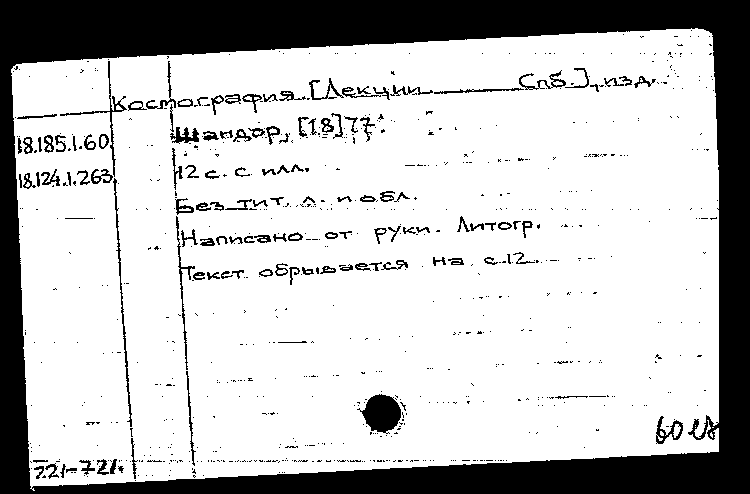 Космография [Лекции Спб.], изд.
18.185.1.60. Шандор, [18]77.
18.124.1.263. 12 с. с илл.
Без тит. л. и обл.
Написано от руки. Литогр.
Текст обрывается на с. 12.
721-721.